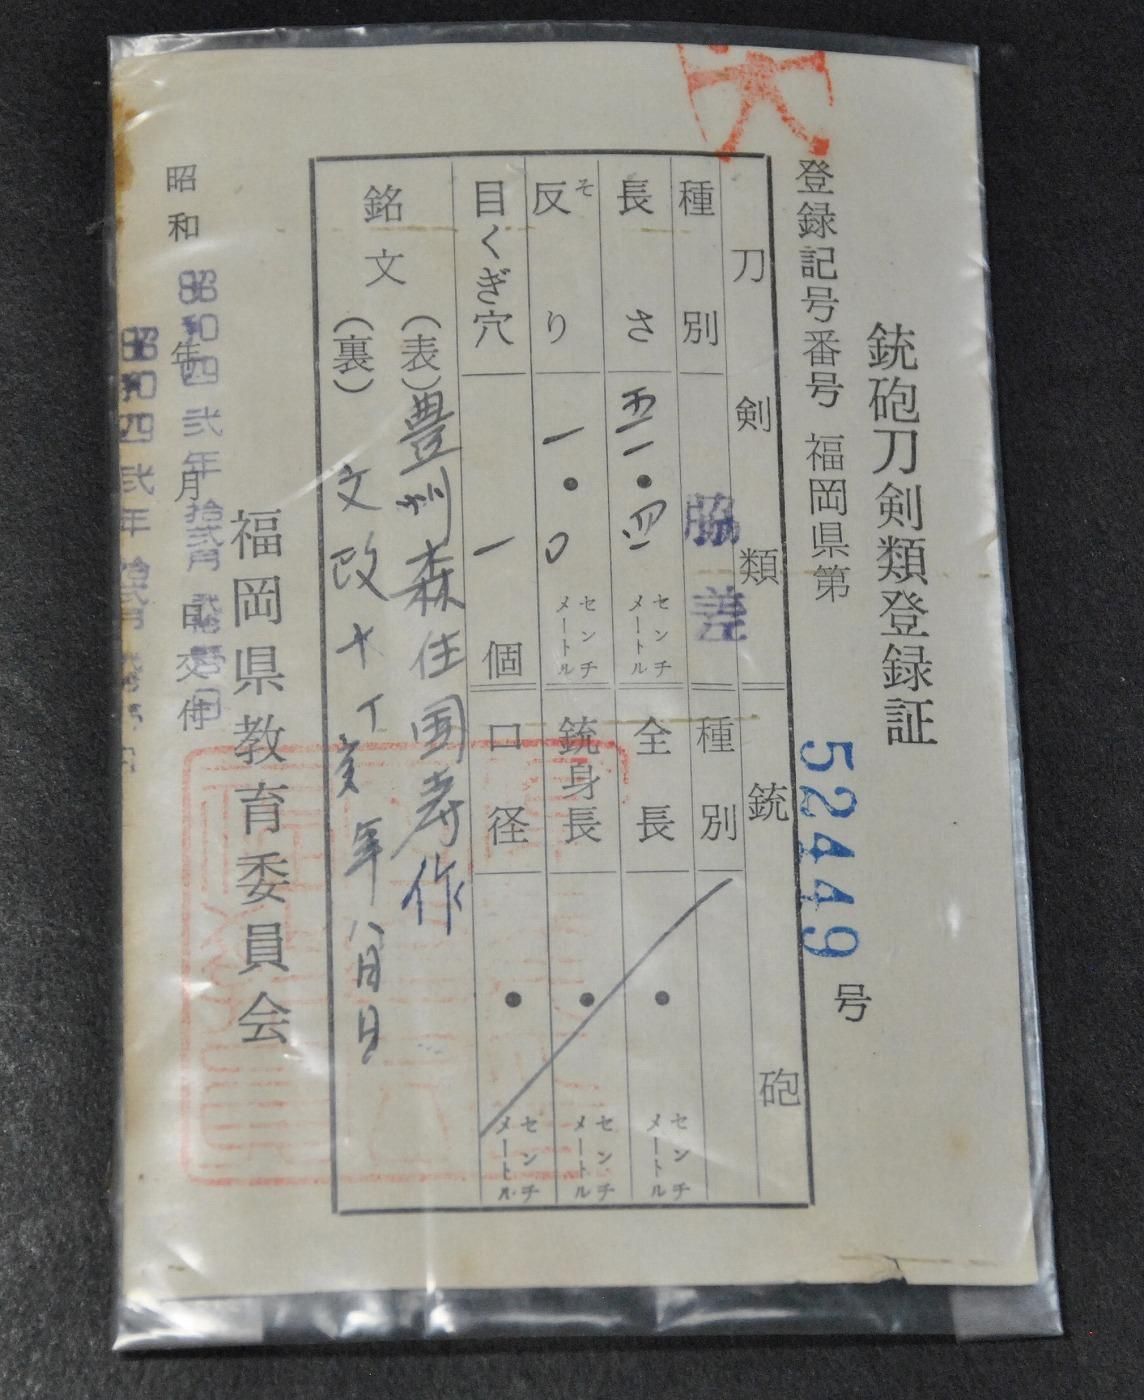 銃砲刀剣類登録証
登録記号番号 福岡県第 52449 号
刀剣類
銃砲
種別 脇差
種別
長さ 五一・四 センチメートル
全長 ・ センチメートル
反り そ 一・〇 センチメートル
銃身長 ・ センチメートル
目くぎ穴 一 個
口径 ・ センチメートル
銘文
(表) 豊州森住国寿作
(裏) 文政十丁亥年八月日
福岡県教育委員会
昭和 年 月 日交付
昭和四弐年拾弐月
昭和四弐年